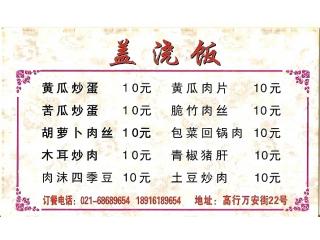 盖浇饭
黄瓜炒蛋 10元 黄瓜肉片 10元
苦瓜炒蛋 10元 脆竹肉丝 10元
胡萝卜肉丝 10元 包菜回锅肉 10元
木耳炒肉 10元 青椒猪肝 10元
肉沫四季豆 10元 土豆炒肉 10元
订餐电话：021-68689654 18916189654 地址：高行万安街22号